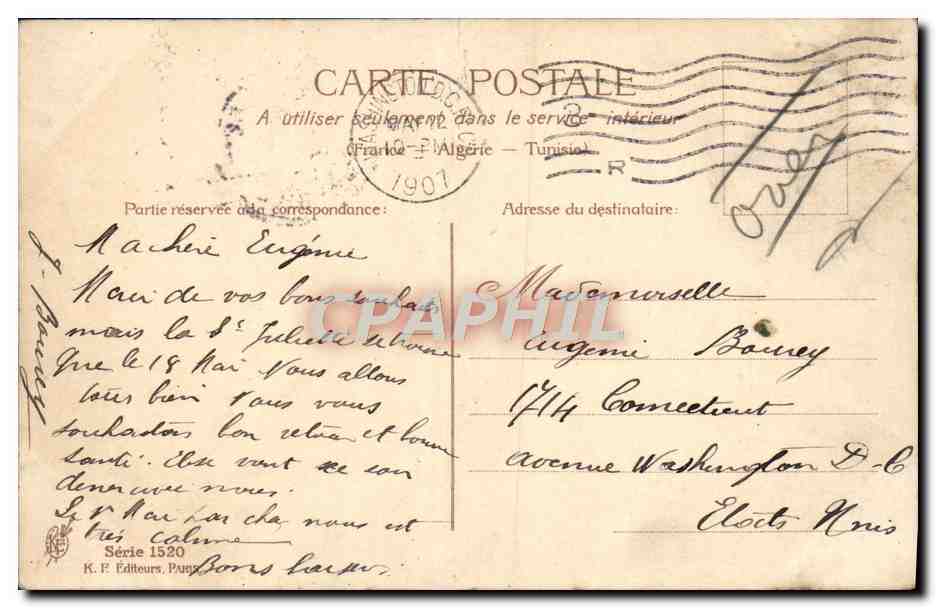 CARTE POSTALE
A utiliser seulement dans le service intérieur
(France — Algérie — Tunisie)
WASHINGTON, D.C.
MAY 12
1907
R
over
Partie réservée à la correspondance:
Ma chère Eugénie
Merci de vos bons souhaits
mais la St Juliette se trouve
que le 18 Mai Nous allons
tous bien Nous vous
souhaitons bon retour et bonne
santé. Else vient ce soir
diner avec nous.
Le 1r Mai par chez nous est
très calme
Bons baisers
J. Bouvey
Adresse du destinataire:
Mademoiselle
Eugenie Bouvey
1714 Connecticut
avenue Washington D-C
Etats Unis
CPAPHIL
Série 1520
K. F. Éditeurs, PARIS